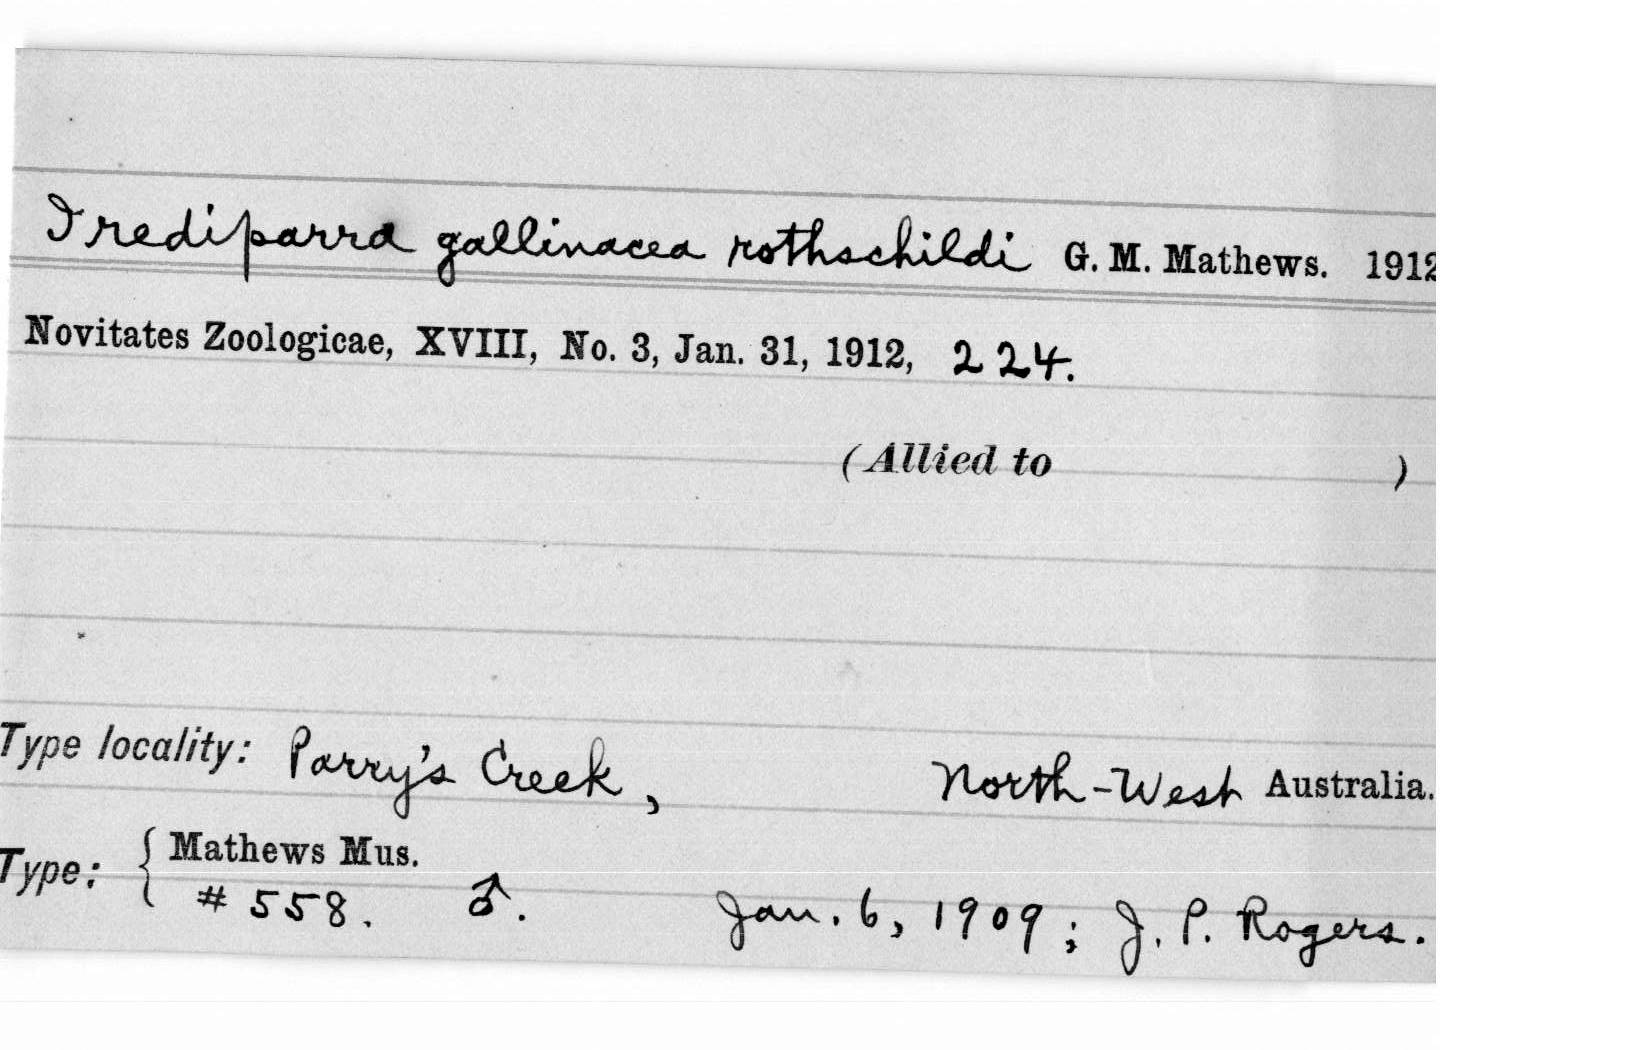 Irediparra gallinacea rothschildi G. M. Mathews. 1912
Novitates Zoologicae, XVIII, No. 3, Jan. 31, 1912, 224.
(Allied to )
Type locality: Parry's Creek, North-West Australia.
Type: { Mathews Mus.
# 558. ♂. Jan. 6, 1909; J. P. Rogers.